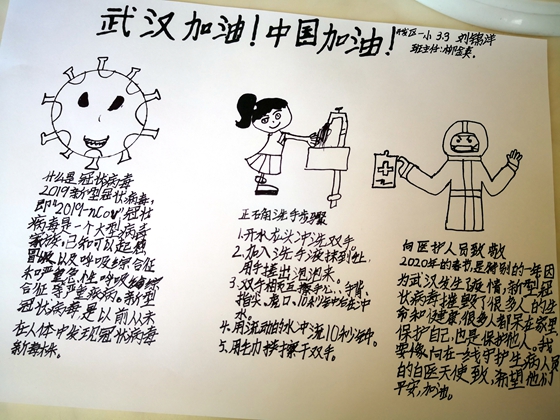 武汉加油！中国加油！
区一小 3.3 刘锦洋
班主任：柳
什么是冠状病毒
2019新型冠状病毒，
即"2019-nCoV"冠状
病毒是一个大型病毒
家族，已知可以起感
冒以及呼吸综合征
和严重急性呼吸综
合征等严重疾病。新型
冠状病毒是以前从未
在人体中发现冠状病毒
新毒株。
正确洗手步骤
1.开水龙头冲洗双手
2.加入洗手液抹到处，
用手搓出泡泡来。
3.双手相互擦手心、手背、
指尖、虎口、10秒钟后在冲
水。
4.用流动的水冲洗10秒钟。
5.用毛巾擦干双手。
向医护人员致敬
2020年的春节，是特别的一年因
为武汉发生了疫情，新型冠
状病毒摧毁了很多人的生
命和健康，很多人都来在家里
保护自己，也是保护他人。我
要像向在一线守护生病人员
的白医天使致，希望他们
平安，加油。